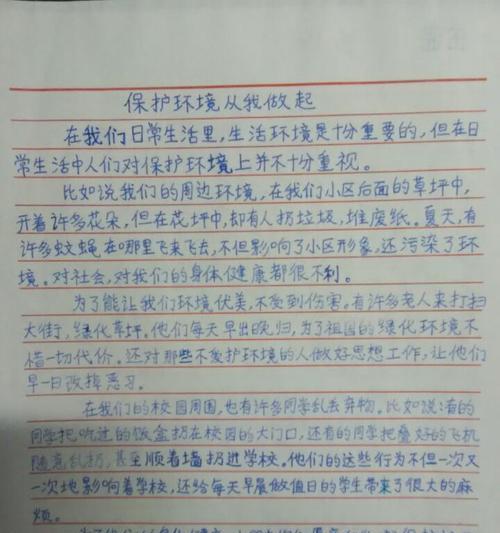 保护环境从我做起
在我们日常生活里,生活环境是十分重要的,但在日
常生活中人们对保护环境上并不十分重视。
比如说我们的周边环境,在我们小区后面的草坪中,
开着许多花朵,但在花坪中,却有人扔垃圾,堆废纸。夏天,有
许多蚊蝇在那里飞来飞去,不但影响了小区形象,还污染了环
境。对社会,对我们的身体健康都很不利。
为了能让我们环境优美,不受到伤害。有许多老人来打扫
大街,绿化草坪。他们每天早出晚归,为了祖国的绿化环境不
惜一切代价。还对那些不爱护环境的人做好思想工作,让他们
早一日改掉恶习。
在我们的校园周围,也有许多同学乱丢弃物。比如说:有的
同学把吃过的饭盒扔在校园的大门口,还有的同学把叠好的飞机
随意乱扔,甚至顺着墙扔进学校。他们的这些行为不但一次又
一次地影响着学校,还给每天早晨做值日的学生带来了很大的麻
烦。